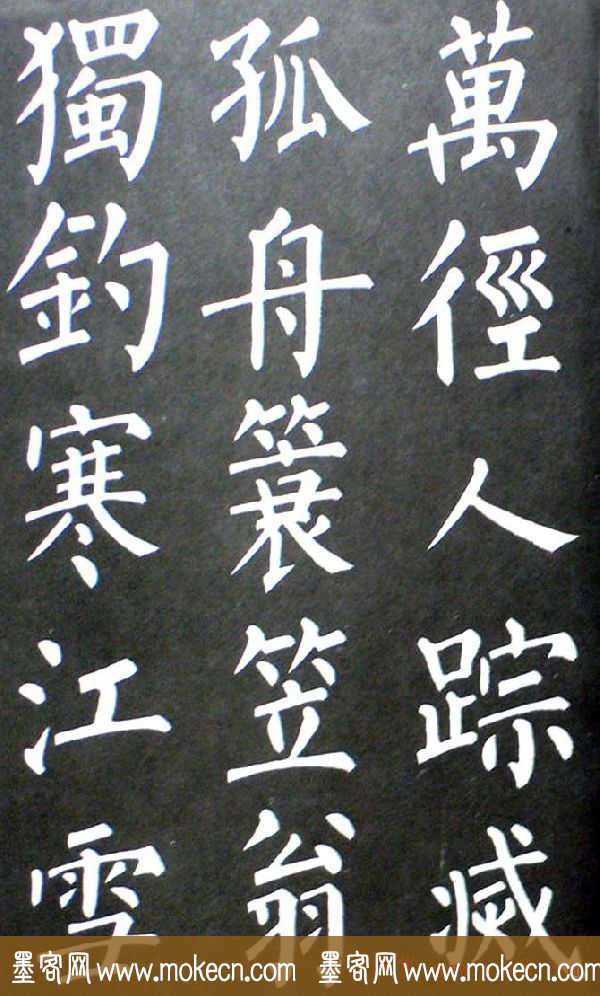 萬徑人踪滅
孤舟簑笠翁
獨釣寒江雪
墨客网 www.mokecn.com 墨客网 www.mokecn.com